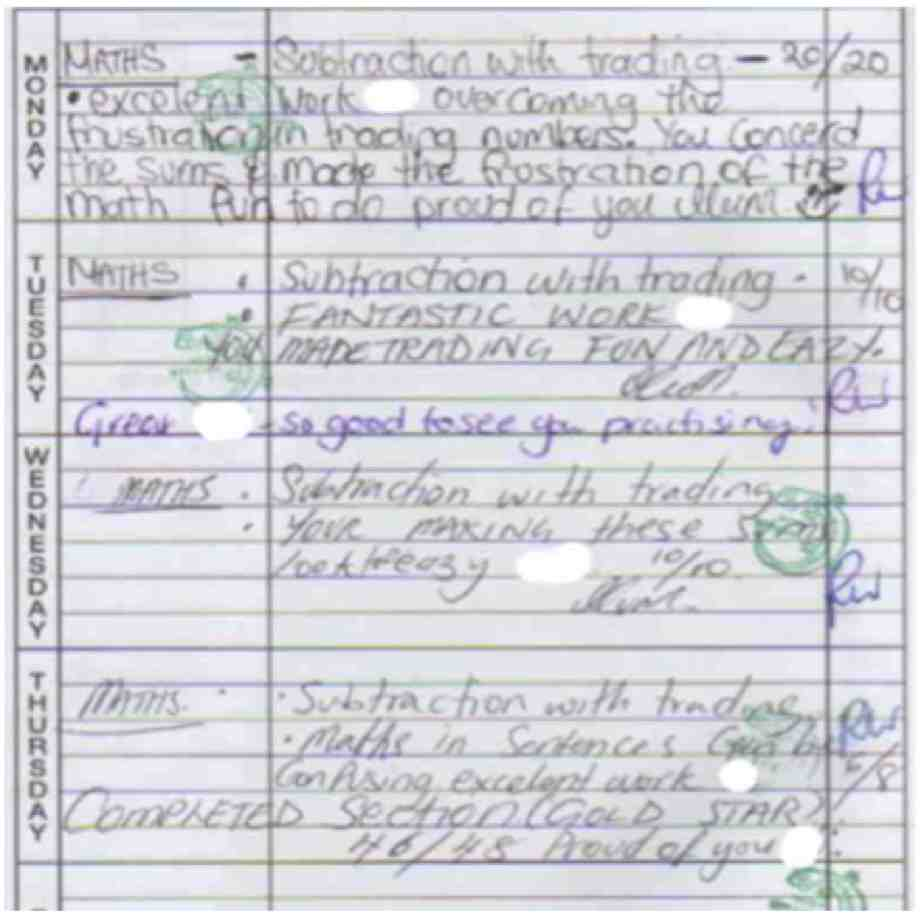 MONDAY
MATHS - Subtraction with trading - 20/20
• excelent work overcoming the
frustration in trading numbers. You Concerd
the sums & made the frostration of the
math fun to do proud of you Mum
RW
TUESDAY
MATHS • Subtraction with trading - 10/10
• FANTASTIC WORK
YOU MADE TRADING FUN AND EAZY.
Mum.
RW
Great - so good to see you practising!
WEDNESDAY
MATHS • Subtraction with trading
• YOUR MAKING these Sums
look eazy 10/10.
Mum.
RW
THURSDAY
MATHS. • Subtraction with trading
RW
• Maths in Sentences Can be
Confusing, excelent work /8
COMPLETED Section (GOLD STAR)
46/48 Proud of you